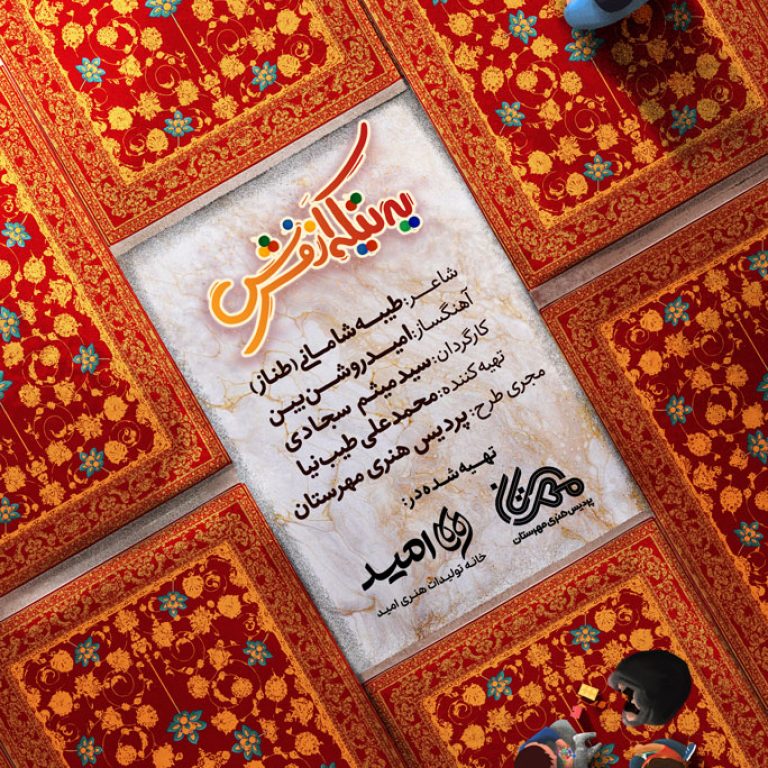 یه تیکه از فرش
شاعر: طیبه شامانی (طناز)
آهنگساز: امید روشن بین
کارگردان: سید میثم سجادی
تهیه کننده: محمدعلی طیب نیا
مجری طرح: پردیس هنری مهرستان
تهیه شده در:
مهرستان
پردیس هنری مهرستان
امید
خانه تولیدات هنری امید